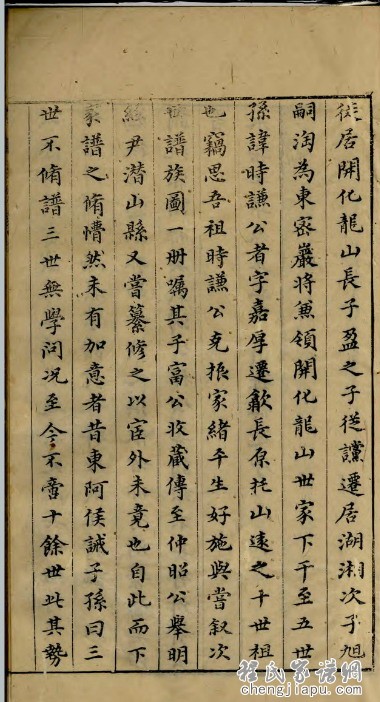 徙居開化龍山長子盈之子從讜遷居湖湘次子旭
嗣淘為東密巖將兼領開化龍山世家下干至五世
孫諱時謙公者字嘉厚遷歙長原托山遠之十世祖
也竊思吾祖時謙公克振家緒平生好施與嘗叙次
世譜族圖一册囑其子富公收藏傳至仲昭公舉明
經尹潜山縣又嘗纂修之以宦外未竟也自此而下
家譜之脩懵然未有加意者昔東阿侯誡子孫曰三
世不脩譜三世無學问况至今不啻十餘世此其勢
程氏家谱網
chengjiapu.com